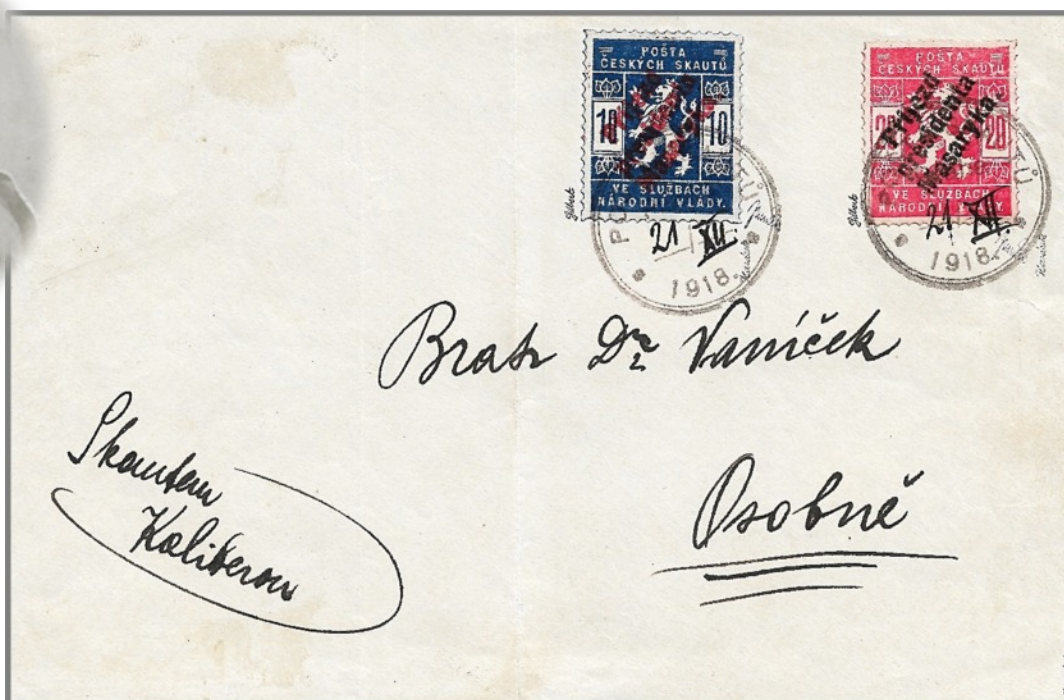 POŠTA
ČESKÝCH SKAUTŮ
10 10
VE SLUŽBÁCH
NÁRODNÍ VLÁDY.
21 XII
1918.
POŠTA
ČESKÝCH SKAUTŮ
Příjezd
presidenta
Masaryka
20 20
VE SLUŽBÁCH
NÁRODNÍ VLÁDY.
21 XII
1918.
Gilbert
Gilbert
Bratr Dr. Vaníček
Skautem
Osobně